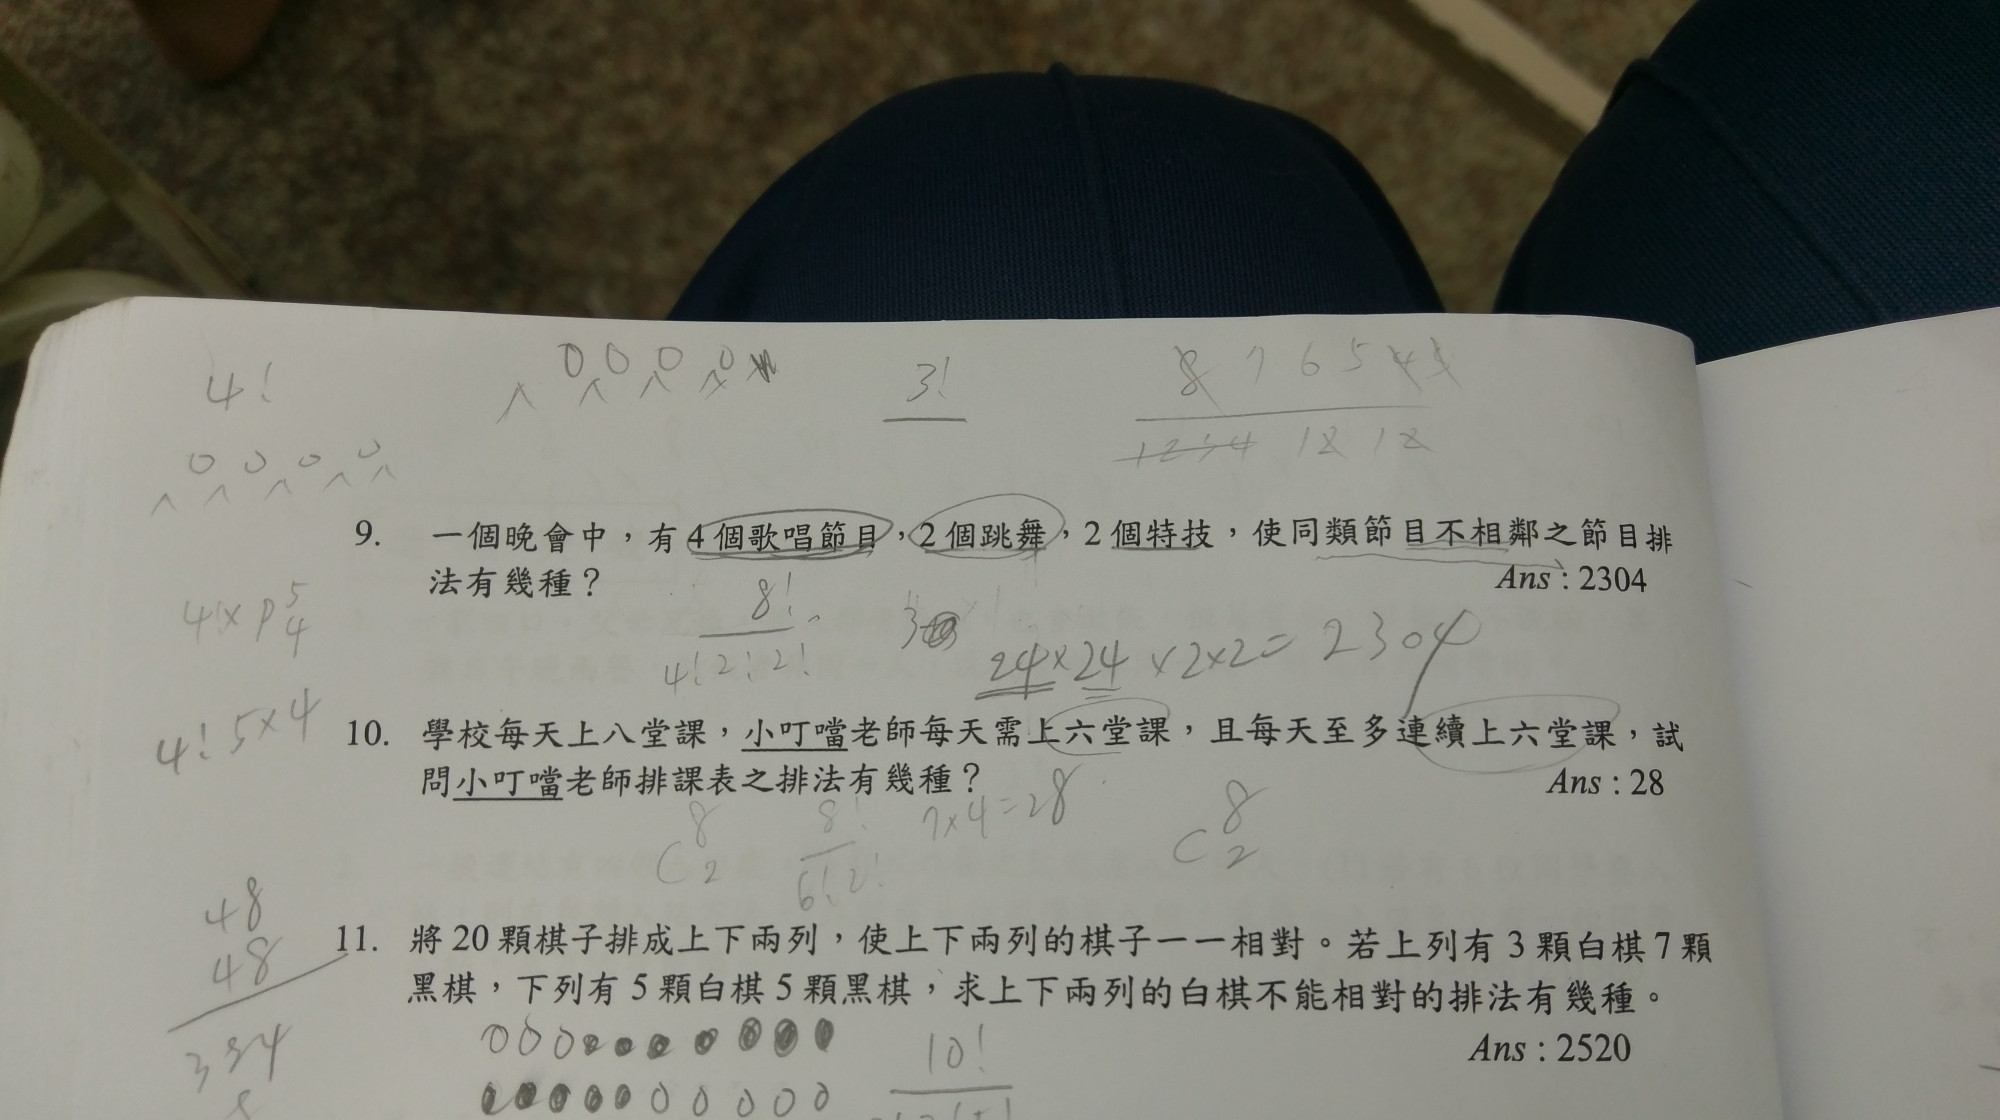 4!
0 0 0 0
3!
8 7 6 5 4
1 2 3 4 1 2 1 2
0 0 0 0
9. 一個晚會中，有 4 個歌唱節目，2 個跳舞，2 個特技，使同類節目不相鄰之節目排
法有幾種？ Ans : 2304
8!
4! 2! 2!
24 × 24 × 2 × 2 = 2304
4! × P 5 4
4! 5 × 4
10. 學校每天上八堂課，小叮噹老師每天需上六堂課，且每天至多連續上六堂課，試
問小叮噹老師排課表之排法有幾種？ Ans : 28
C 8 2
8!
6! 2!
7 × 4 = 28
C 8 2
48
48
11. 將 20 顆棋子排成上下兩列，使上下兩列的棋子一一相對。若上列有 3 顆白棋 7 顆
黑棋，下列有 5 顆白棋 5 顆黑棋，求上下兩列的白棋不能相對的排法有幾種。
Ans : 2520
10!